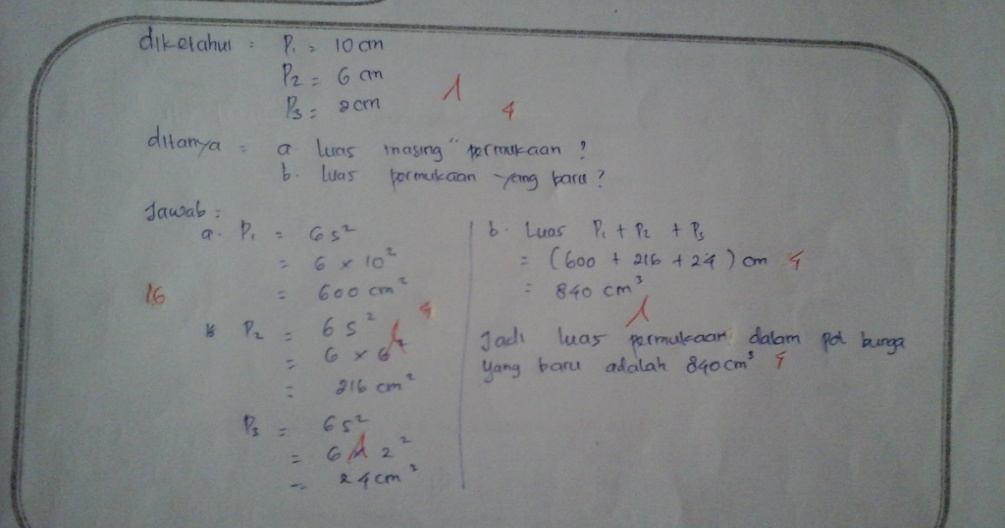 diketahui = P₁ = 10 cm
P₂ = 6 cm
P₃ = 2cm
4
ditanya = a. luas masing" permukaan ?
b. luas permukaan yang baru ?
Jawab :
a. P₁ = 6s²
= 6 × 10²
= 600 cm²
16
P₂ = 6s²
4
= 6 × 6²
= 216 cm²
P₃ = 6s²
= 6 × 2²
= 24cm²
b. Luas P₁ + P₂ + P₃
= (600 + 216 + 24) cm 4
= 840 cm³
Jadi luas permukaan dalam pot bunga
yang baru adalah 840cm³ 4